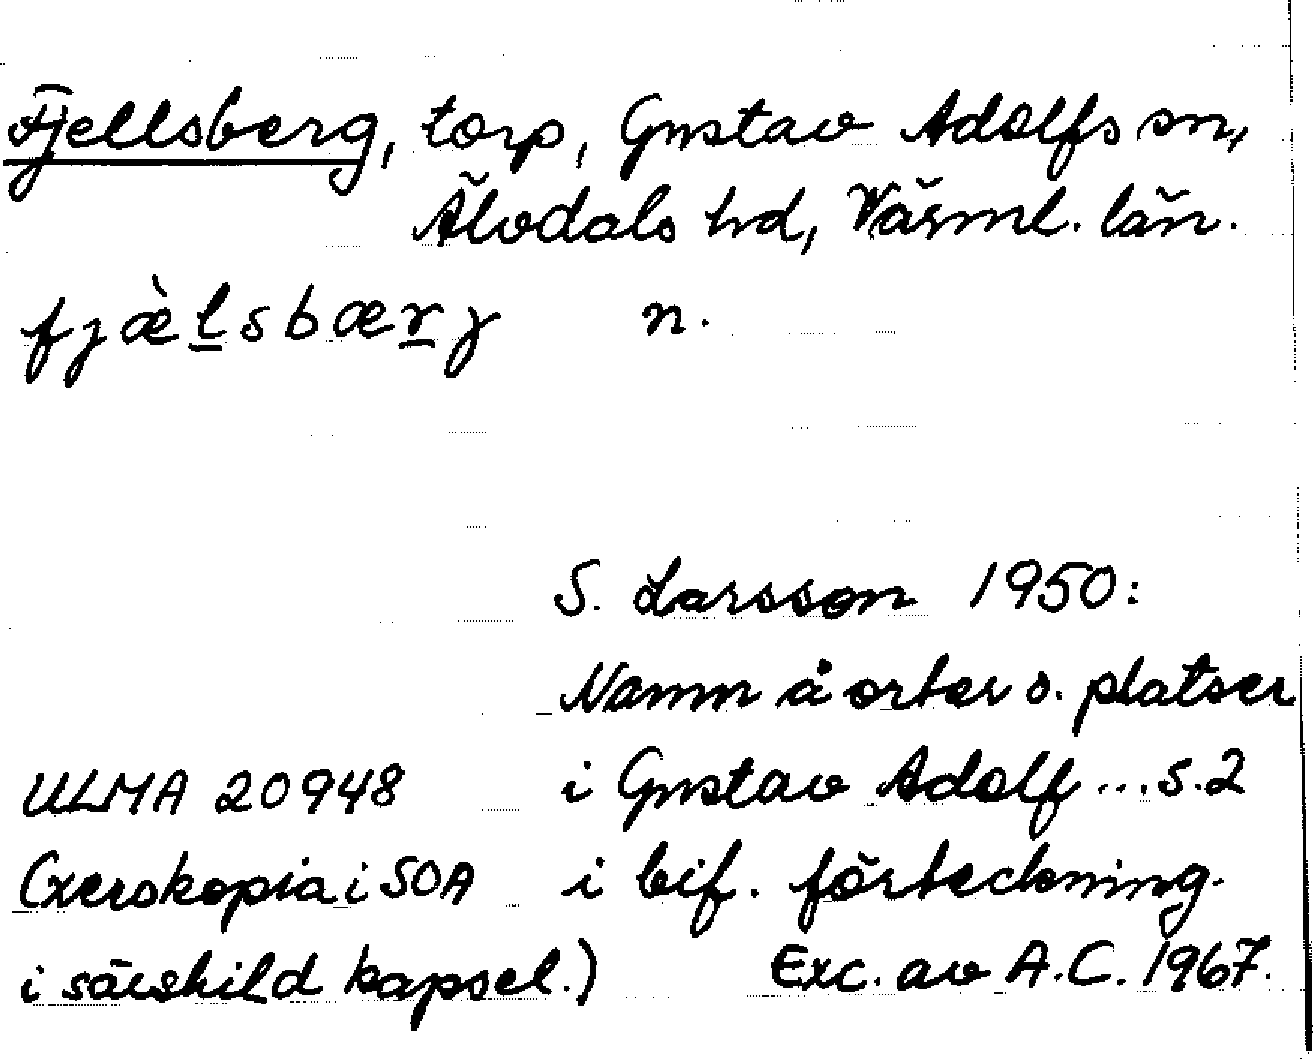 Fjellsberg, torp, Gustav Adolfs sn,
Älvdals hd, Värml. län.
fjæ̀l̲sbær̲j n.
S. Larsson 1950:
Namn å orter o. platser
ULMA 20948 i Gustav Adolf ... s.2
(xerokopia i SOA i bif. förteckning.
i särskild kapsel.) Exc. av A.C. 1967.